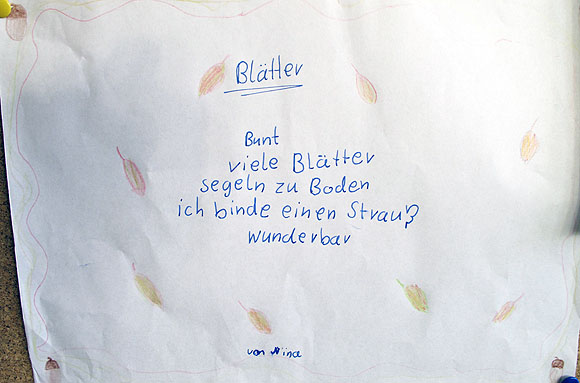 Blätter
Bunt
viele Blätter
segeln zu Boden
ich binde einen Strauß
wunderbar
von Nina